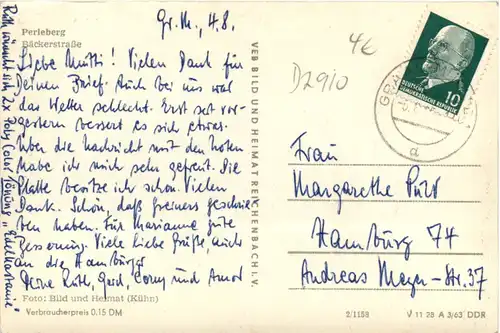 Perleberg
Bäckerstraße
Gr. M., 4.8.
Liebe Mutti! Vielen Dank für
Deinen Brief. Auch bei uns war
das Wetter schlecht. Erst seit vor-
gestern bessert es sich etwas.
Über die Nachricht mit den Noten
habe ich mich sehr gefreut. Die
Platte besitze ich schon. Vielen
Dank. Schön, daß geschrie-
ben haben. Für Marianne gute
Besserung. Viele liebe Grüße, auch
an die Hamburger
Deine Ruth, Gerd, Conny und
Ruth wünscht sich 2x Poly Color Tönung „Edelkastanie"
Foto: Bild und Heimat (Kühn)
Verbraucherpreis 0.15 DM
VEB BILD UND HEIMAT REICHENBACH I. V.
4€
D2910
DEUTSCHE
DEMOKRATISCHE REPUBLIK
10
a
Frau
Margarethe
Hamburg 74
Andreas Meyer-Str. 37
2/1158
V 11 28 A 3/63 DDR